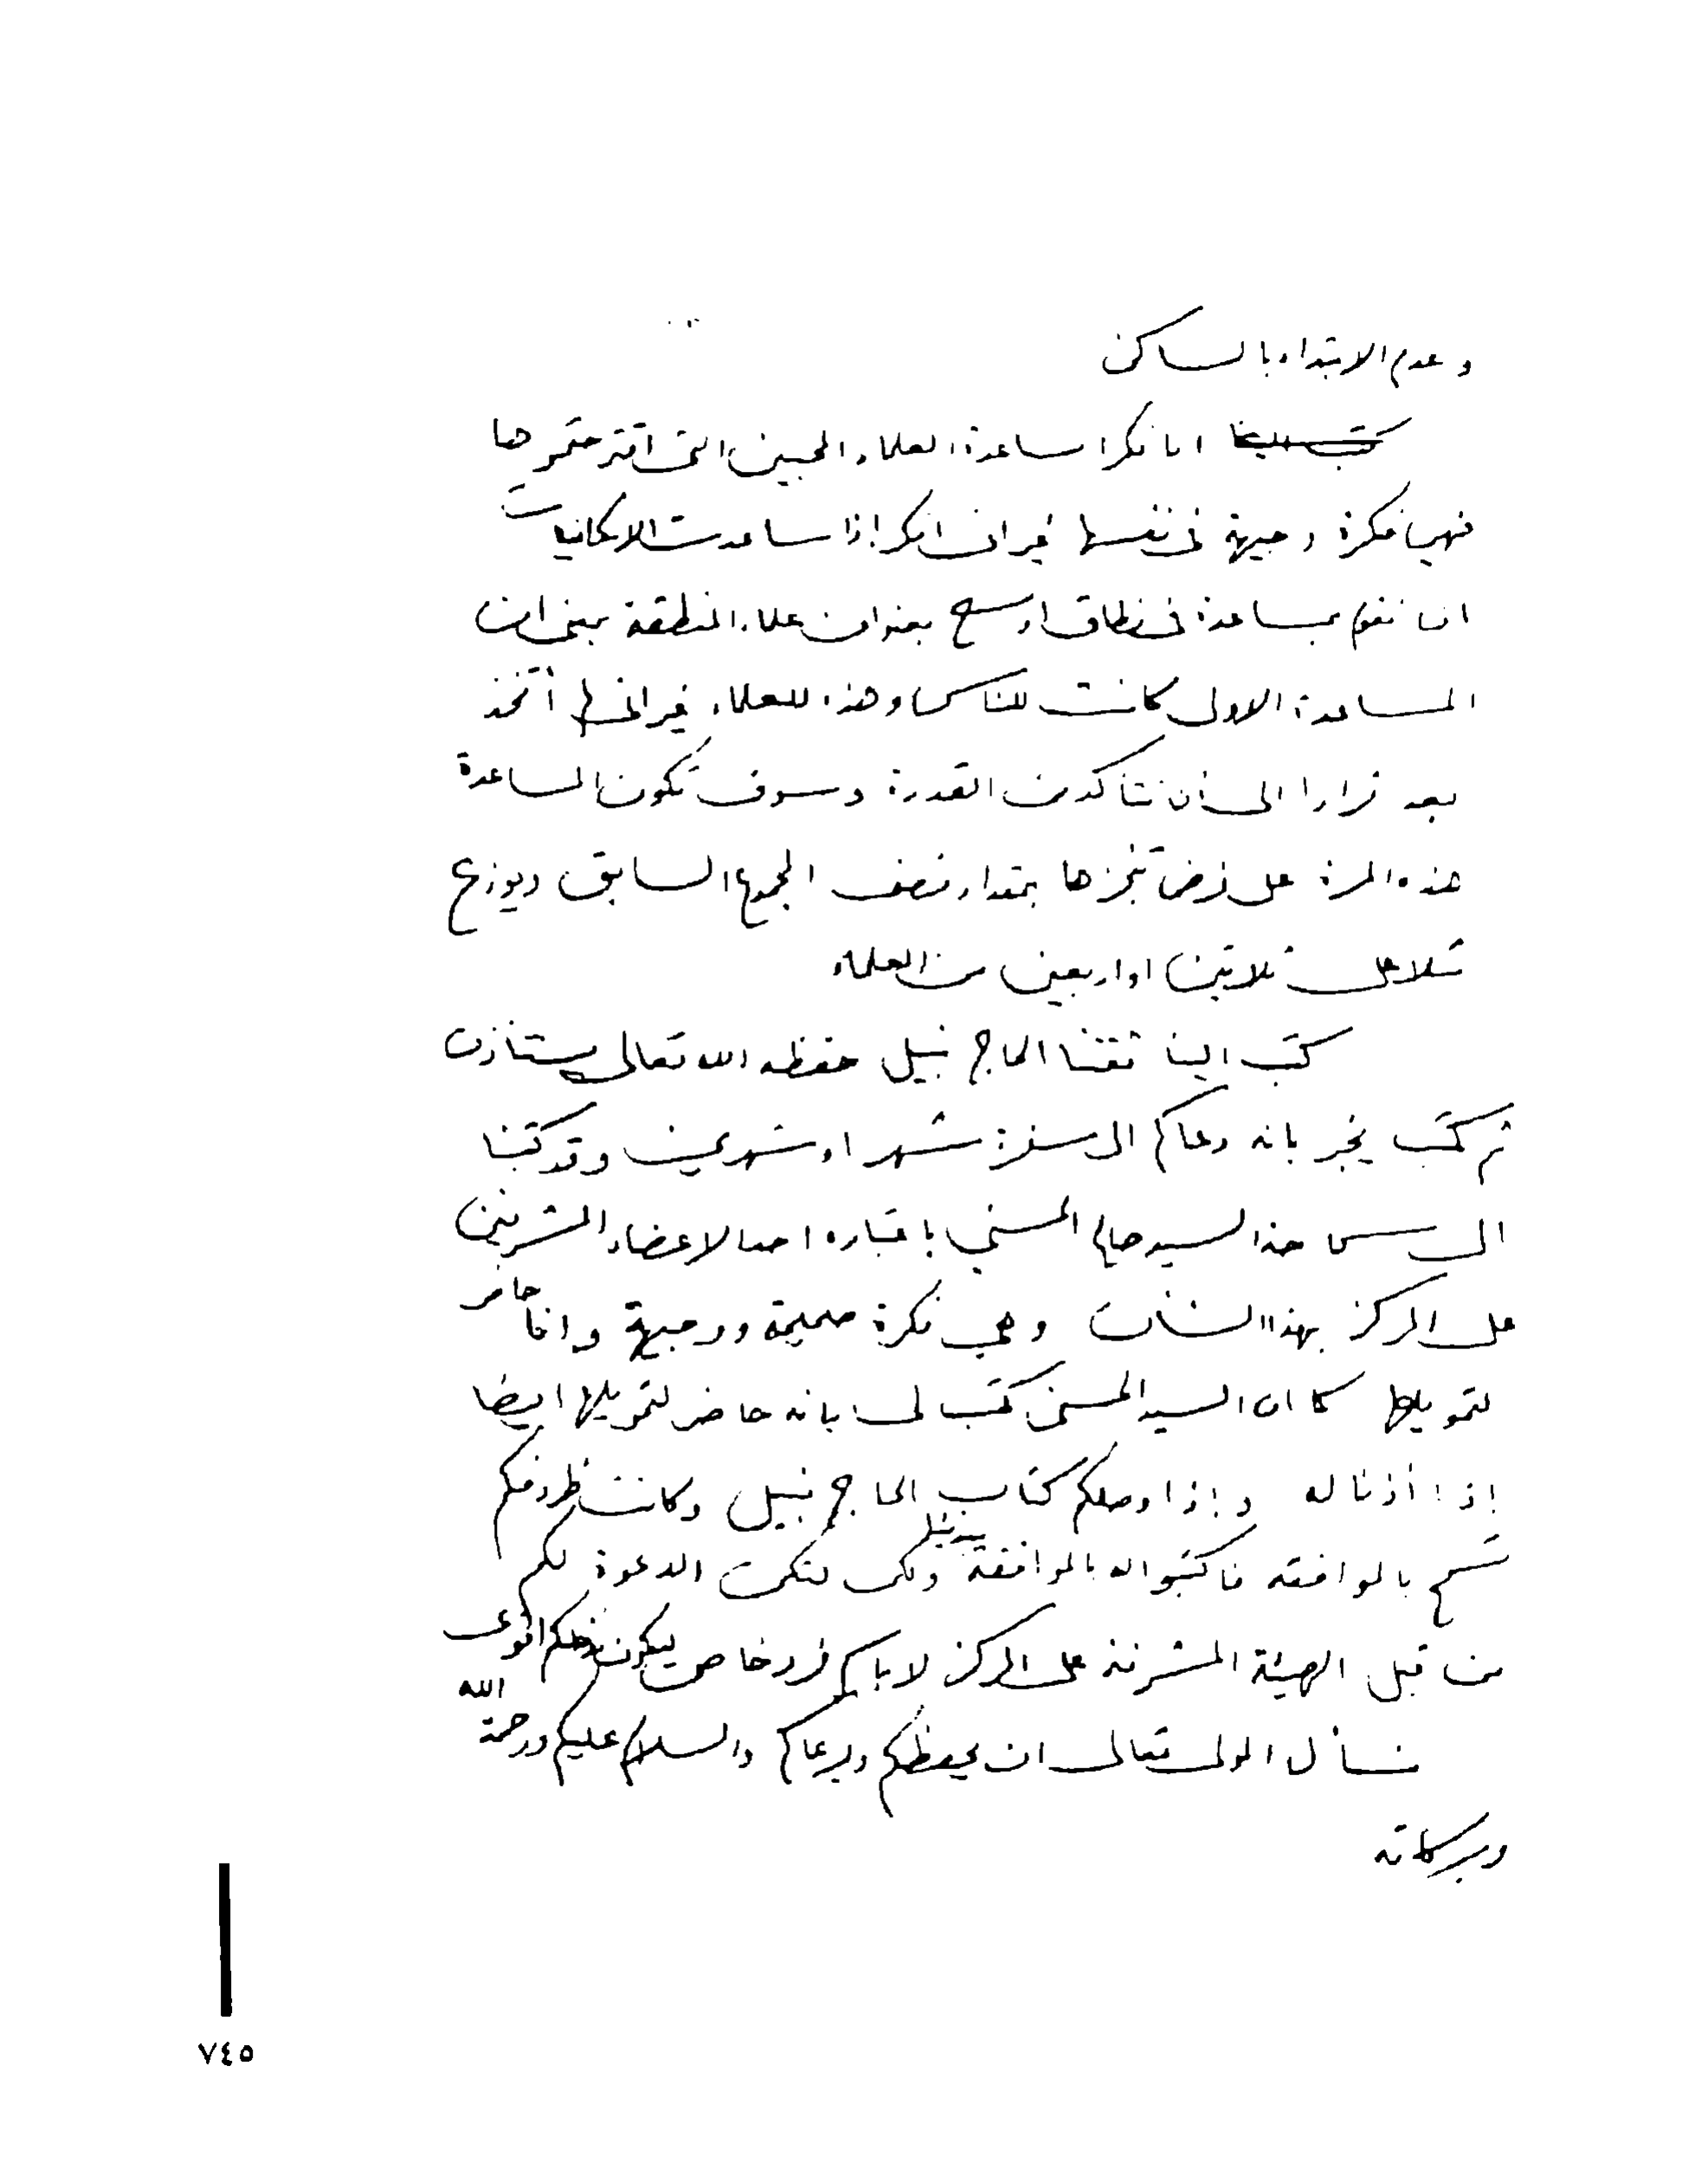 وعدم الابتداء بالساكن
اما فكرة مساعدة العلماء المحبين التي اقترحتموها
فهي فكرة وجيهة في نفسها غير اني افكر اذا ساعدت الامكانيات
ان نقوم بمساعدة في نطاق اوسع بعنوان علماء المنطقة بمعنى ان
المساعدة الاولى كانت للناس وهذه للعلماء غير اني لم أتخذ
بعد قرارا الى أن نتأكد من القدرة وسوف تكون المساعدة
هذه المرة على فرض تنجزها بمقدار نصف المجموع السابق ويوزع
مثلا على ثلاثين او اربعين من العلماء
كتب الينا ثقتنا الحاج نبيل حفظه الله تعالى يستأذن
ثم كتب يخبر بانه دعاكم الى سفرة شهر او شهرين وقد كتبنا
الى السيد الحسني باعتباره احد الاعضاء المشرفين
على المركز بهذا الشأن وهي فكرة صحيحة ووجيهة وانا حاضر
لتمويلها كما ان السيد الحسني كتب لي بانه حاضر لتمويلها ايضا
إذا أذنا له وإذا وصلكم كتاب الحاج نبيل وكانت ظروفكم
تسمح بالموافقة فاكتبوا له بالموافقة ولكن لتكن الدعوة لكم
من قبل الهيئة المشرفة على المركز لا باسم فرد خاص ليكون اقوى
نسأل المولى تعالى ان يحفظكم ويرعاكم والسلام عليكم ورحمة الله
وبركاته
٧٤٥